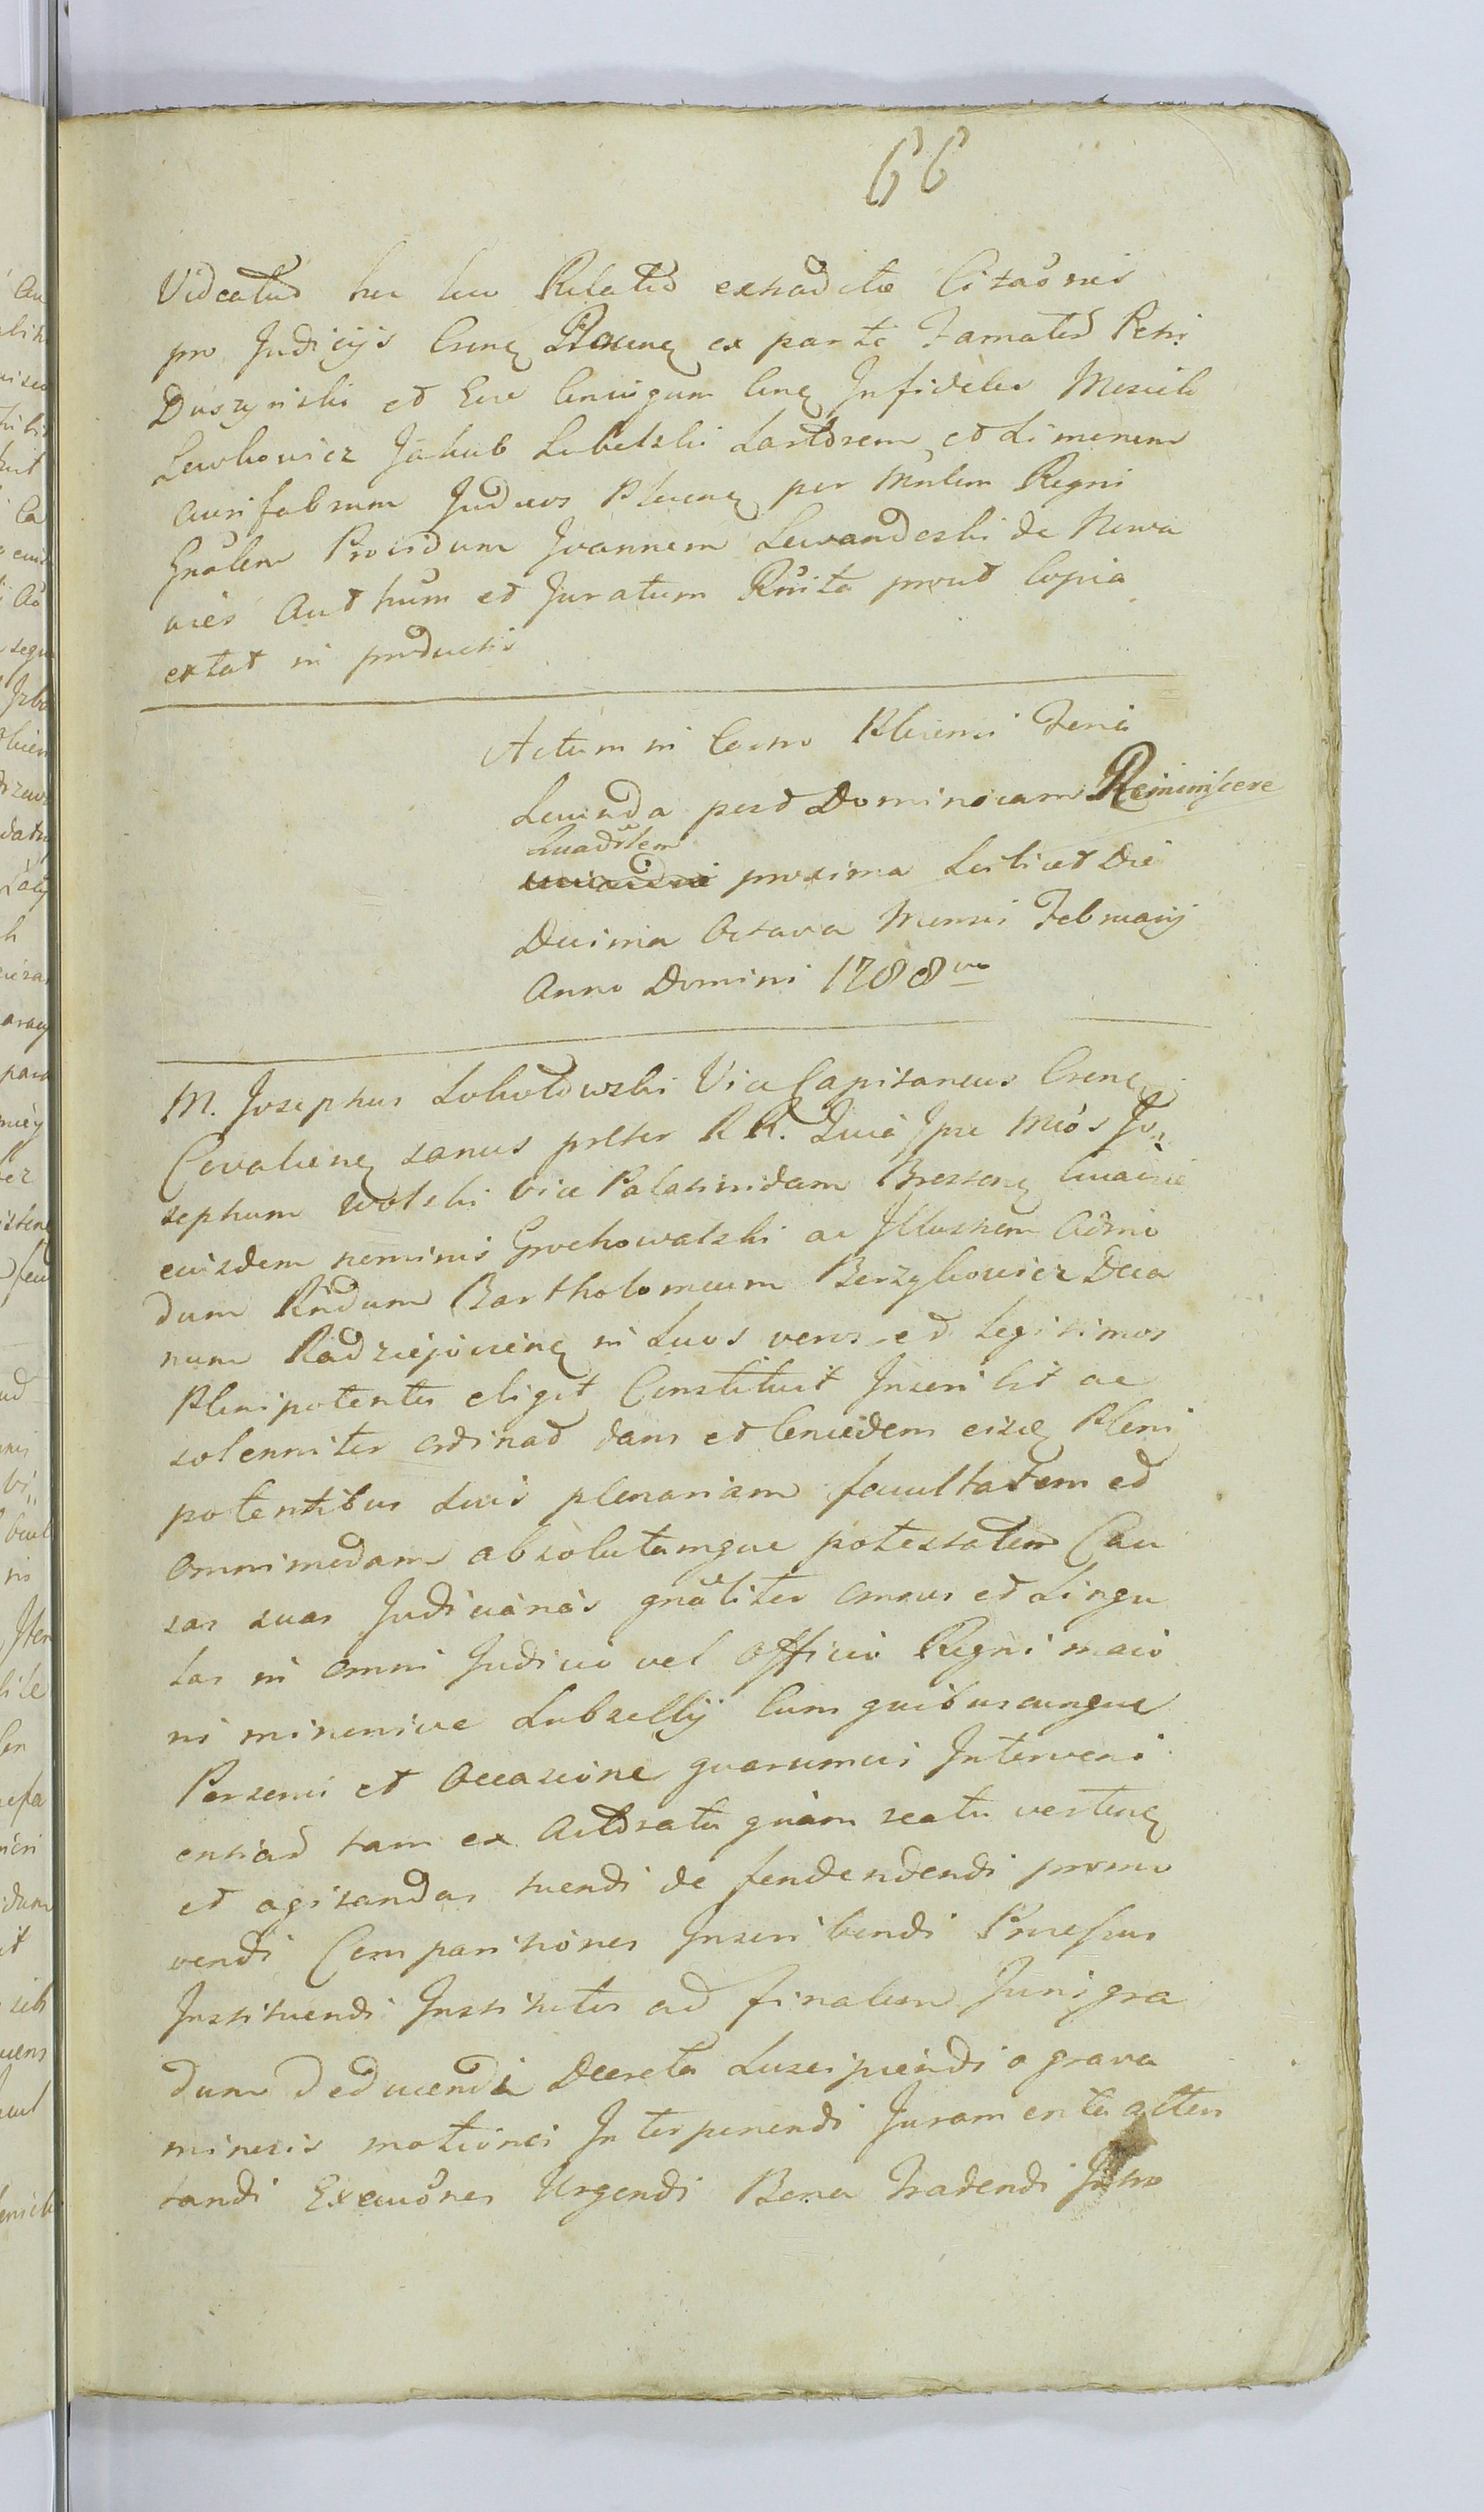 66
Videatur hic loco Relatio extraditæ Citaõnis
pro Judicijs Crens Plocens ex parte Famatus Petri
Duszynski et sive coniugum cens Infideles
Lewkowicz Jakub Lubelski Sartorem et Simonem
aurifabrum Judæos Plocens per Mnlem Regni
Gnãlem Providum Joannem Lewandoski de Nowa
wies Authum et Juratum Rnita prout Copia
extat in productis
Actum in Castro Plocensi Feria
Secunda post Dominicam Reminiscere
Quadrlem
proxima Scilicet Die
Decima Octava Mensis Februarij
Anno Domini 1788vo
M. Josephus Sokołowski Vice Capitaneus Crens
Covaliens sanus prlter RR. Quia Ipse Mcos Jo
sephum Wolski vice Palatinidam Brestens Cuiavie
eiusdem nominis Grochowalski ac Illustrem Admo
dum Rndum Bartholomeum Berzykowicz Deca
num Radziejoviens in Suos veros et legitimos
Plenipotentes eligit Constituit Inscribit ac
solenniter ordinat dans et Concedens eisdem Pleni
potentibus Suis plenariam facultatem et
omnimodam absolutamque potestatem Cau
sas suas Judiciarias gnãliter omnes et Singu
las in omni Judicio vel Officio Regni maio
ris minorisve Subsellij Cum quibuscunque
Personis et Occasione quarumvis Interveni
entiad tam ex Actoratu quàm reatu vertens
et agitandas tuendi defendendendi promo
vendi Comparitiones Inscribendi Processus
Instituendi Institutos ad finalem Juris gra
dum Deducendi Decreta Suscipiendi a grava
minosis motiones Interponendi Juramenta atten
tandi Executiones Urgendi Bona Tradendi Intro